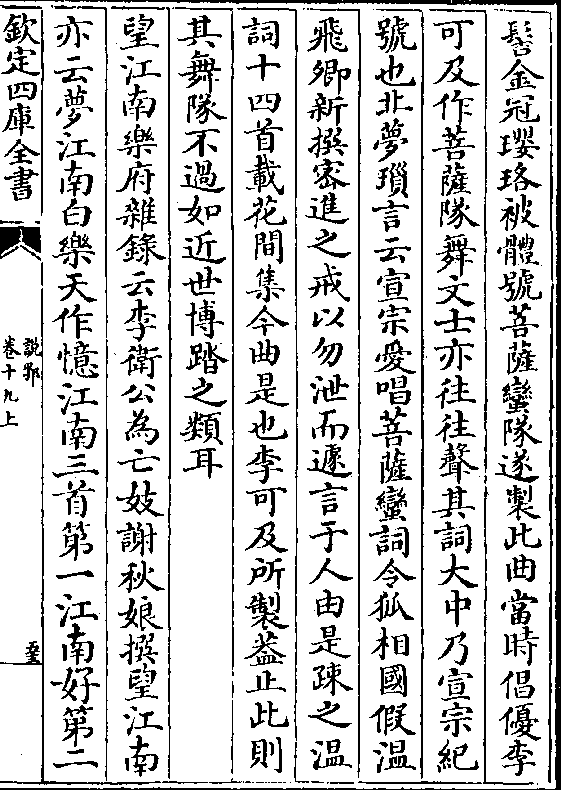 髻金冠瓔珞被體號菩薩蠻隊遂製此曲當時倡優李
可及作菩薩隊舞文士亦往往聲其詞大中乃宣宗紀
號也北夢瑣言云宣宗愛唱菩薩蠻詞令狐相國假温
飛卿新撰密進之戒以勿泄而遽言于人由是疎之温
詞十四首載花間集今曲是也李可及所製葢止此則
其舞隊不過如近世博踏之類耳
望江南樂府雜錄云李衛公為亡妓謝秋娘撰望江南
亦云夢江南白樂天作憶江南三首第一江南好第二
欽定四庫全書
説郛
卷十九上